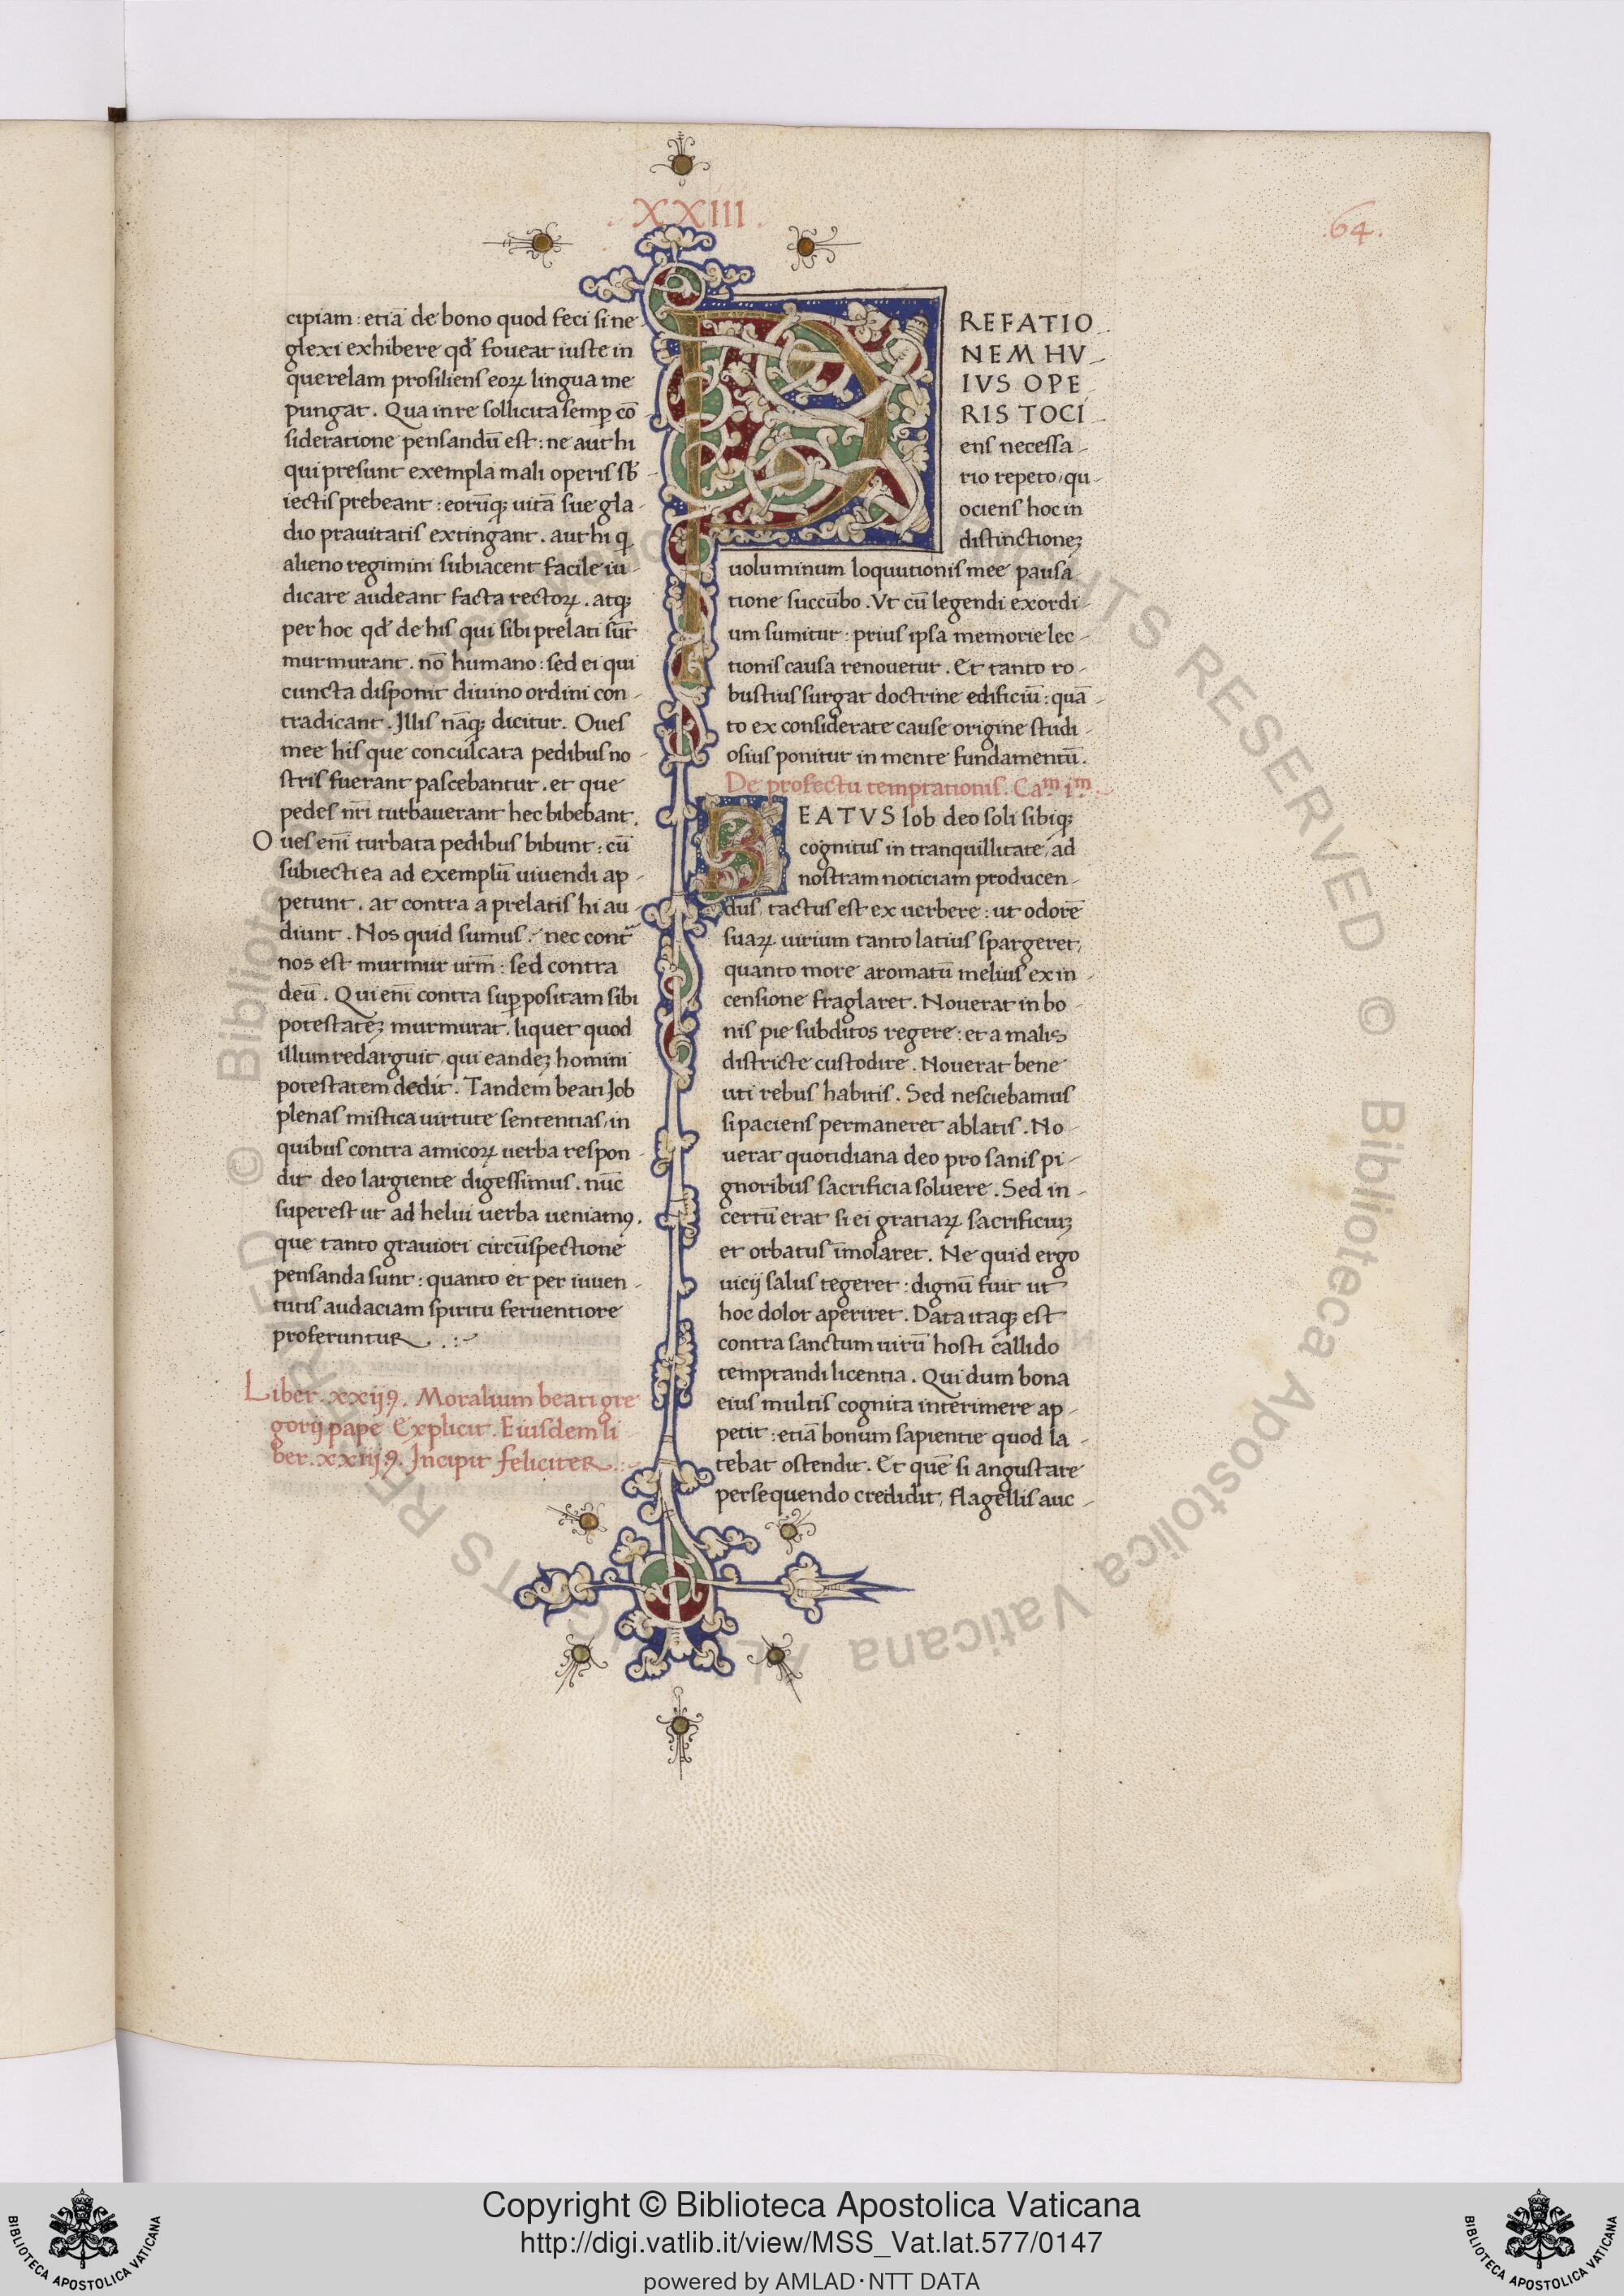 .XXIII.
.64.
cipiam : etiā de bono quod feci si ne-
glexi exhibere qđ foueat iuste in
querelam prosiliens eoꝝ lingua me
pungat . Qua in re sollicita semꝑ cō
sideratione pensandū est : ne aut hi
qui presunt exempla mali operis sƀ-
iectis prebeant : eorūqꝫ uitā sue gla-
dio prauitatis extingant . aut hi q̄
alieno regimini subiacent facile iu-
dicare audeant facta rectoꝝ . atqꝫ
per hoc qđ de his qui sibi prelati sūt
murmurant . nō humano : sed ei qui
cuncta disponit diuino ordini con-
tradicant . Illis nāqꝫ dicitur . Oues
mee his que conculcata pedibus no-
stris fuerant pascebantur . et que
pedes nr̄i turbauerant hec bibebant .
Oues enī turbata pedibus bibunt : cū
subiecti ea ad exemplū uiuendi ap-
petunt . at contra a prelatis hi au-
diunt . Nos quid sumus . nec cont
nos est murmur urm̄ : sed contra
deū . Qui enī contra suꝑpositam sibi
potestateꝫ murmurat . liquet quod
illum redarguit , qui eandeꝫ homini
potestatem dedit . Tandem beati Job
plenas mistica uirtute sententias , in
quibus contra amicoꝝ uerba respon-
dit deo largiente digessimus . nūc
superest ut ad heliu uerba ueniamꝰ .
que tanto grauiori circūspectione
pensanda sunt : quanto et per iuuen-
tutis audaciam spiritu feruentiore
proferuntur . : ~
Liber . xxijꝰ . Moralium beati gre
gorij pape Explicit . Eiusdem li-
ber . xxiijꝰ . Incipit feliciter . : ~
REFATIO
NEM HV-
IVS OPE
RIS TOCI
ens necessa-
rio repeto , qu-
ociens hoc in
distinctioneꝫ
uoluminum loquutionis mee pausa
tione succūbo . Vt cū legendi exordi-
um sumitur : prius ipsa memorie lec-
tionis causa renouetur . Et tanto ro-
bustius surgat doctrine edificiū : quā-
to ex considerate cause origine studi-
osius ponitur in mente fundamentū .
De profectu temptationis . Caᵐ iᵐ .
BEATVS Iob deo soli sibiqꝫ
cognitus in tranquillitate , ad
nostram noticiam producen-
dus , tactus est ex uerbere : ut odorē
suaꝝ uirium tanto latius spargeret ,
quanto more aromatū melius ex in-
censione fraglaret . Nouerat in bo-
nis pie subditos regere : et a malis
districte custodire . Nouerat bene
uti rebus habitis . Sed nesciebamus
si paciens permaneret ablatis . No-
uerat quotidiana deo pro sanis pi-
gnoribus sacrificia soluere . Sed in-
certū erat si ei gratiaꝝ sacrificiuꝫ
et orbatus īmolaret . Ne quid ergo
uicij salus tegeret : dignū fuit ut
hoc dolor aperiret . Data itaqꝫ est
contra sanctum uirū hosti callido
temptandi licentia . Qui dum bona
eius multis cognita interimere ap-
petit : etiā bonum sapientie quod la-
tebat ostendit . Et quē si angustare
persequendo credidit , flagellis auc-
© Biblioteca Apostolica Vaticana ALL RIGHTS RESERVED
Copyright © Biblioteca Apostolica Vaticana
http://digi.vatlib.it/view/MSS_Vat.lat.577/0147
powered by AMLAD・NTT DATA
BIBLIOTECA APOSTOLICA VATICANA
BIBLIOTECA APOSTOLICA VATICANA